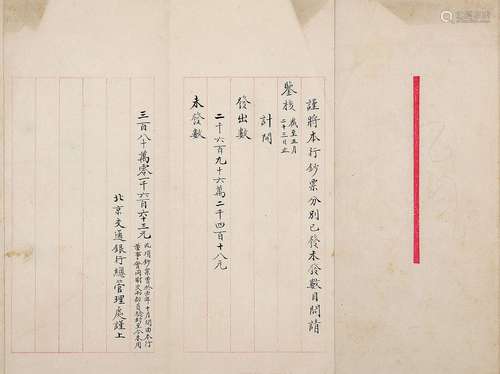 謹將本行鈔票分別已發未發數目開請
鑒核 截至五月
二十三日止
計開
發出數
二千六百九十六萬二千四百十八元
未發數
三百八十萬零一千六百六十三元
北京交通銀行總管理處謹上